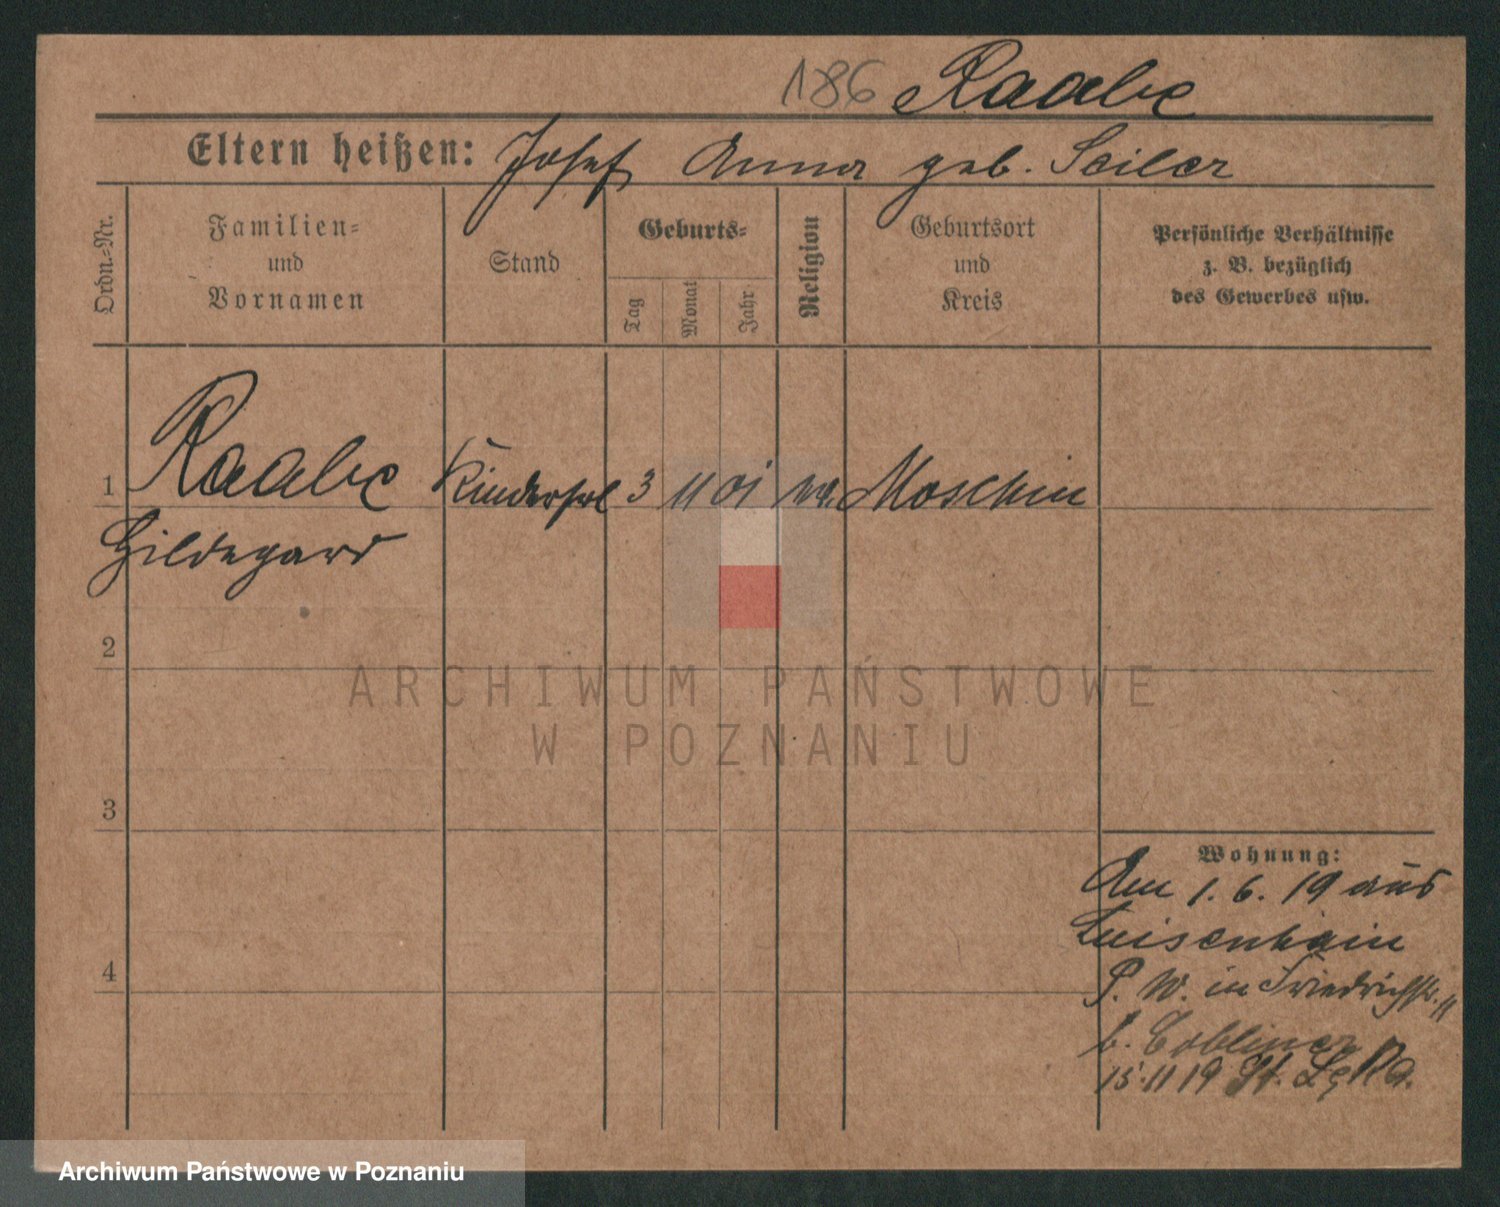 186 Raabe
Eltern heißen: Josef Anna geb. Seiler
Ordn.-Nr.
Familien-
und
Vornamen
Stand
Geburts-
Tag
Monat
Jahr
Religion
Geburtsort
und
Kreis
Persönliche Verhältnisse
z. B. bezüglich
des Gewerbes usw.
1 Raabe Kinderfrl 3 11 01 Moschin
Hildegard
2
3
4
Wohnung:
Am 1. 6. 19 aus
Luisenhain
P. W. in Friedrichstr. 11
b. Cobliner
15.11 19
ARCHIWUM PAŃSTWOWE
W POZNANIU
Archiwum Państwowe w Poznaniu